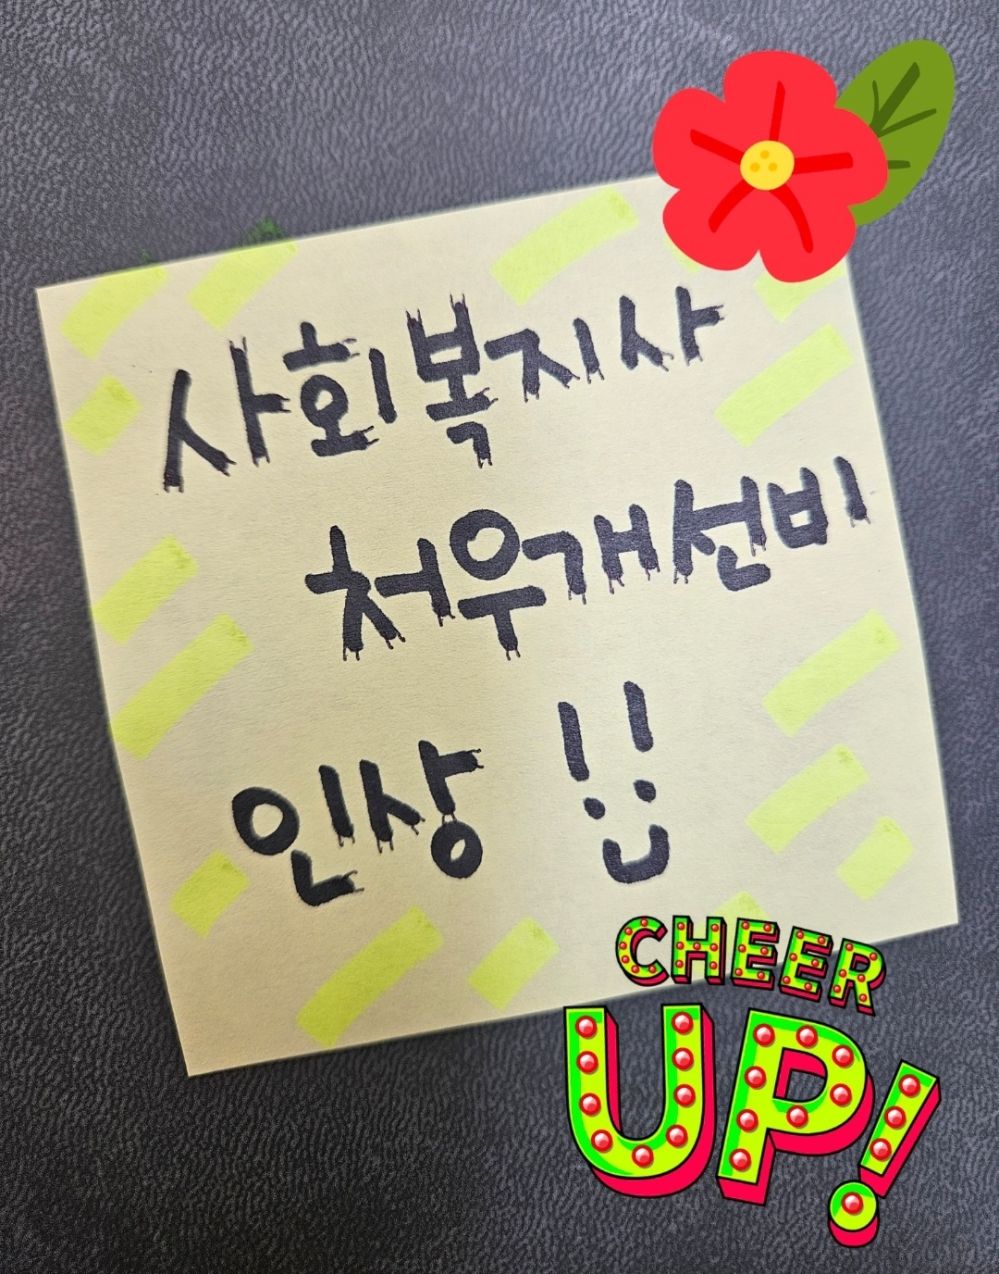 사회복지사
처우개선비
인상 !!
CHEER
UP!